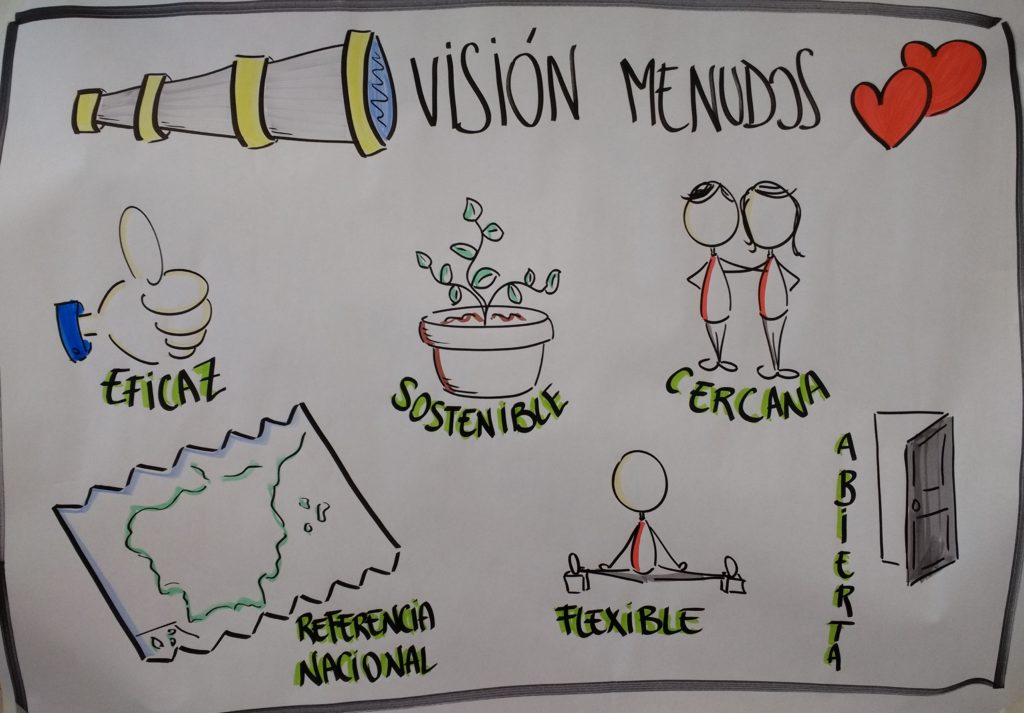 VISIÓN MENUDOS
EFICAZ
SOSTENIBLE
CERCANA
REFERENCIA
NACIONAL
FLEXIBLE
ABIERTA